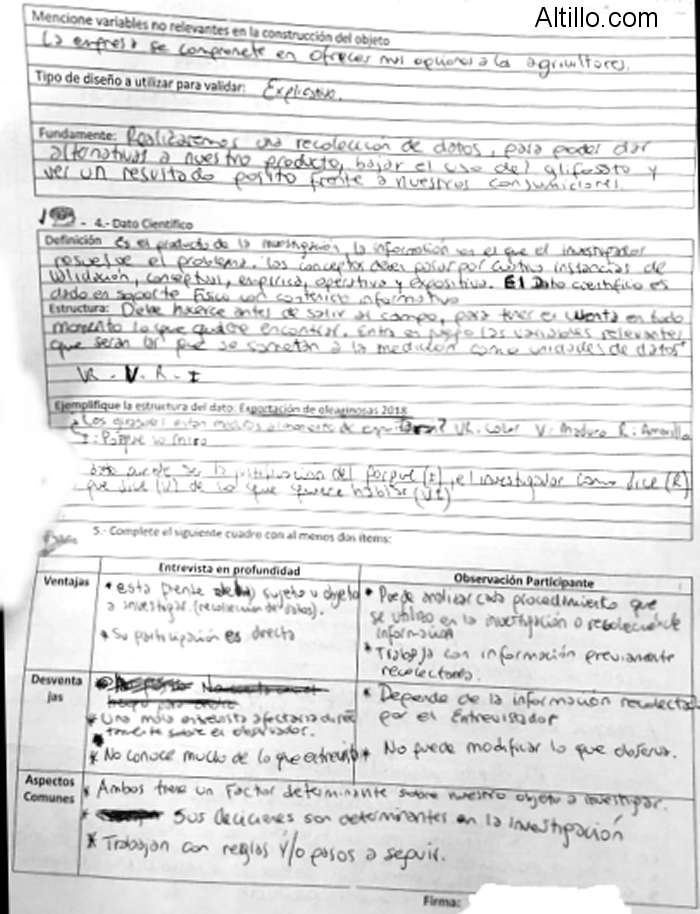 Altillo.com
Mencione variables no relevantes en la construcción del objeto
La empresa se compromete en ofrecer mas opciones a la agricultores.
Tipo de diseño a utilizar para validar: Explicativo.
Fundamente: Realizaremos una recolección de datos, para poder dar
alternativas a nuestro producto, bajar el uso del glifosato y
ver un resultado posito frente a nuestros consumidores.
- 4.- Dato Científico
Definición Es el producto de la investigación, la información en el que el investigador
resuelve el problema. Los conceptos deben pasar por cuatro instancias de
Validación, conceptual, empírica, operativa y expositiva. El Dato científico es
dado en soporte físico con contenido informativo
Estructura: Debe hacerse antes de salir al campo, para tener en cuenta en todo
momento lo que quiere encontrar. Entra en juego las variables relevantes
que serán las que se sometan a la medición como unidades de datos
VR - V - R - I
Ejemplifique la estructura del dato: Exportación de oleaginosas 2018
Los girasoles están al momento de VR - Color V: Maduro R: Amarillo
I: Porque lo miro
puede ser la justificación del porque (I), el investigador como dice (R)
que dice (V) de lo que quiere hablar (VR)
5.- Complete el siguiente cuadro con al menos dos ítems:
Entrevista en profundidad
Observación Participante
Ventajas
* esta frente sujeto u objeto
a investigar. (recolección de datos).
* Su participación es directa
* Puede analizar cada procedimiento que
se utilizo en la investigación o recolección de
información
* Trabaja con información previamente
recolectada.
Desventa
jas
* Una mala entrevista afectaria direc
tamente sobre el observador.
* No conoce mucho de lo que entrevista
* Depende de la información recolectada
por el Entrevistador
* No puede modificar lo que observa.
Aspectos
Comunes
* Ambos tiene un factor determinante sobre nuestro objeto a investigar.
* Sus decisiones son determinantes en la investigación
* Trabajan con reglas y/o pasos a seguir.
Firma: